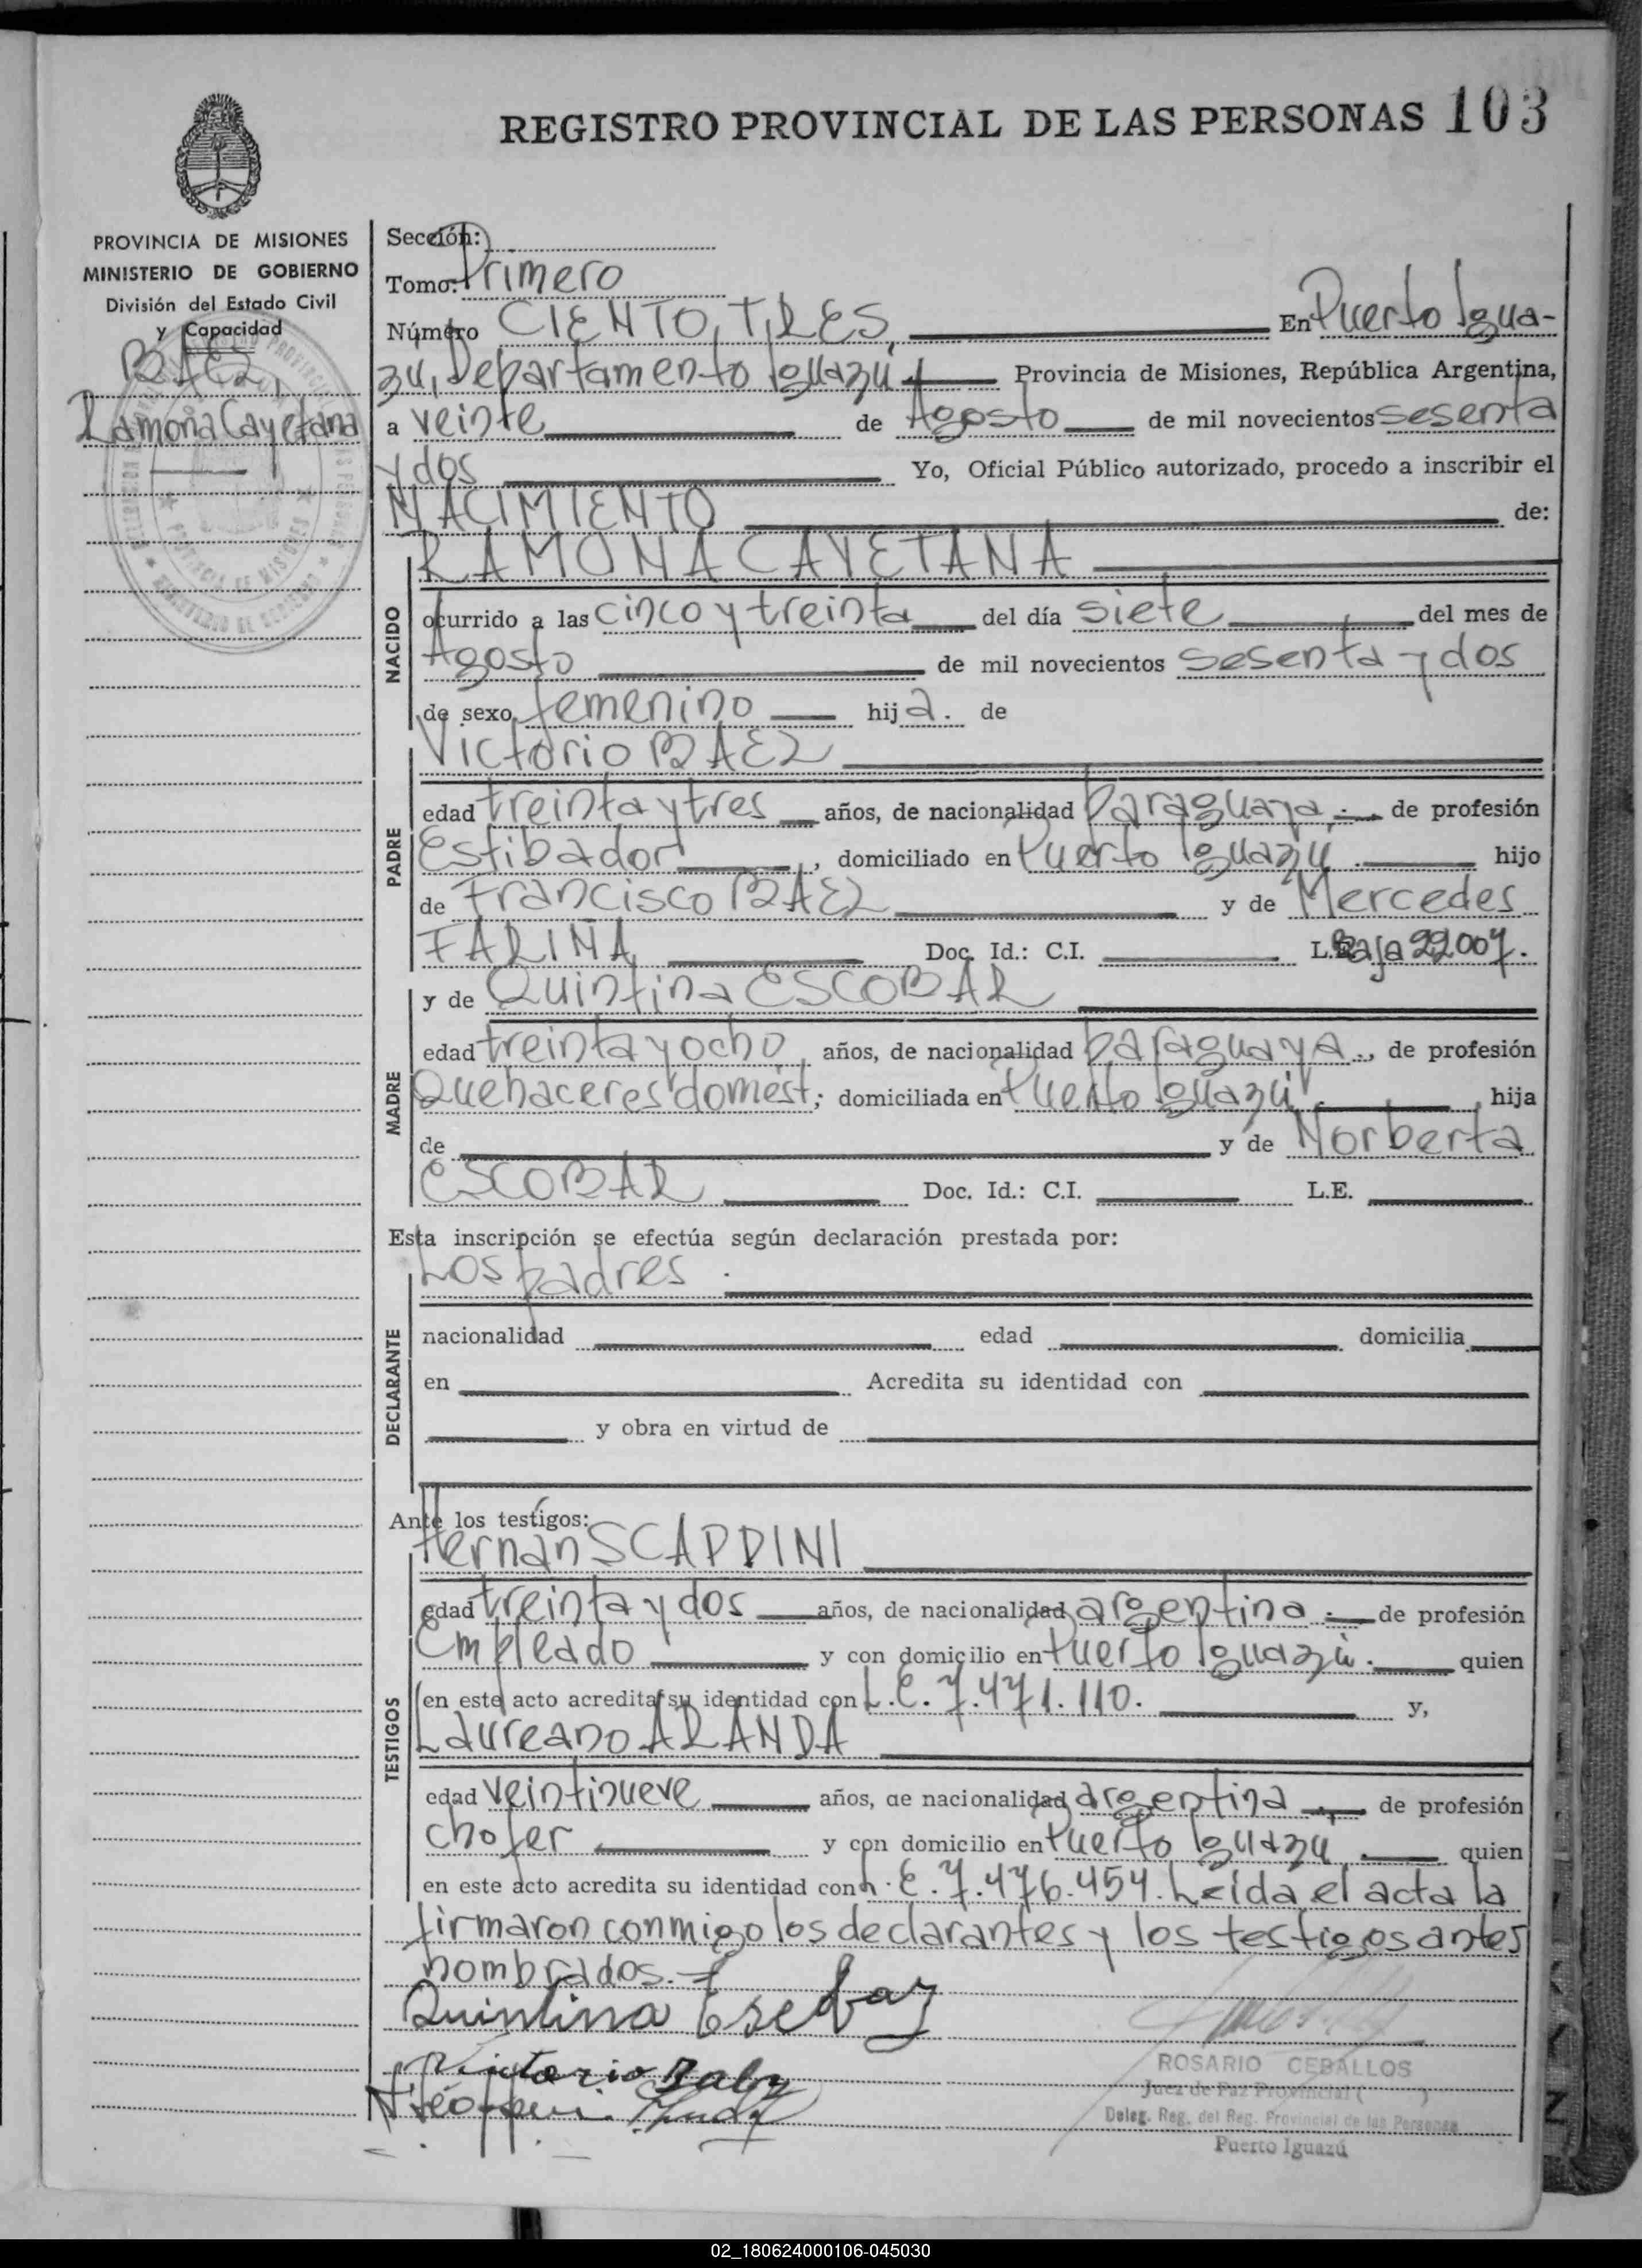 REGISTRO PROVINCIAL DE LAS PERSONAS 103
PROVINCIA DE MISIONES
MINISTERIO DE GOBIERNO
División del Estado Civil
y Capacidad
BAEZ,
Ramona Cayetana
Sección:
Tomo: Primero
Número CIENTO TRES, En Puerto Igua-
zú, Departamento Iguazú Provincia de Misiones, República Argentina,
a veinte de Agosto de mil novecientos sesenta
y dos Yo, Oficial Público autorizado, procedo a inscribir el
NACIMIENTO de:
RAMONA CAYETANA
NACIDO
ocurrido a las cinco y treinta del día siete del mes de
Agosto de mil novecientos sesenta y dos
de sexo femenino hija. de
Victorio BAEZ
PADRE
edad treinta y tres años, de nacionalidad paraguaya, de profesión
Estibador, domiciliado en Puerto Iguazú hijo
de Francisco BAEZ y de Mercedes
FARIÑA Doc. Id.: C.I. L.E. Baja 22007.
y de Quintina ESCOBAR
MADRE
edad treinta y ocho años, de nacionalidad paraguaya., de profesión
Quehaceres domést; domiciliada en Puerto Iguazú, hija
de y de Norberta
ESCOBAR Doc. Id.: C.I. L.E.
Esta inscripción se efectúa según declaración prestada por:
Los padres.
DECLARANTE
nacionalidad edad domicilia
en Acredita su identidad con
y obra en virtud de
Ante los testigos:
Hernan SCAPPINI
TESTIGOS
edad treinta y dos años, de nacionalidad argentina de profesión
Empleado y con domicilio en Puerto Iguazú. quien
en este acto acredita su identidad con L.E. 7.471.110. y,
Laureano ARANDA
edad veintinueve años, de nacionalidad argentina de profesión
chofer y con domicilio en Puerto Iguazú quien
en este acto acredita su identidad con L.E. 7.476.454. Leída el acta la
firmaron conmigo los declarantes y los testigos antes
nombrados.
Quintina Escobar
Victorio
ROSARIO CEBALLOS
Juez de Paz Provincial
Deleg. Reg. del Reg. Provincial de las Personas
Puerto Iguazú
02_180624000106-045030